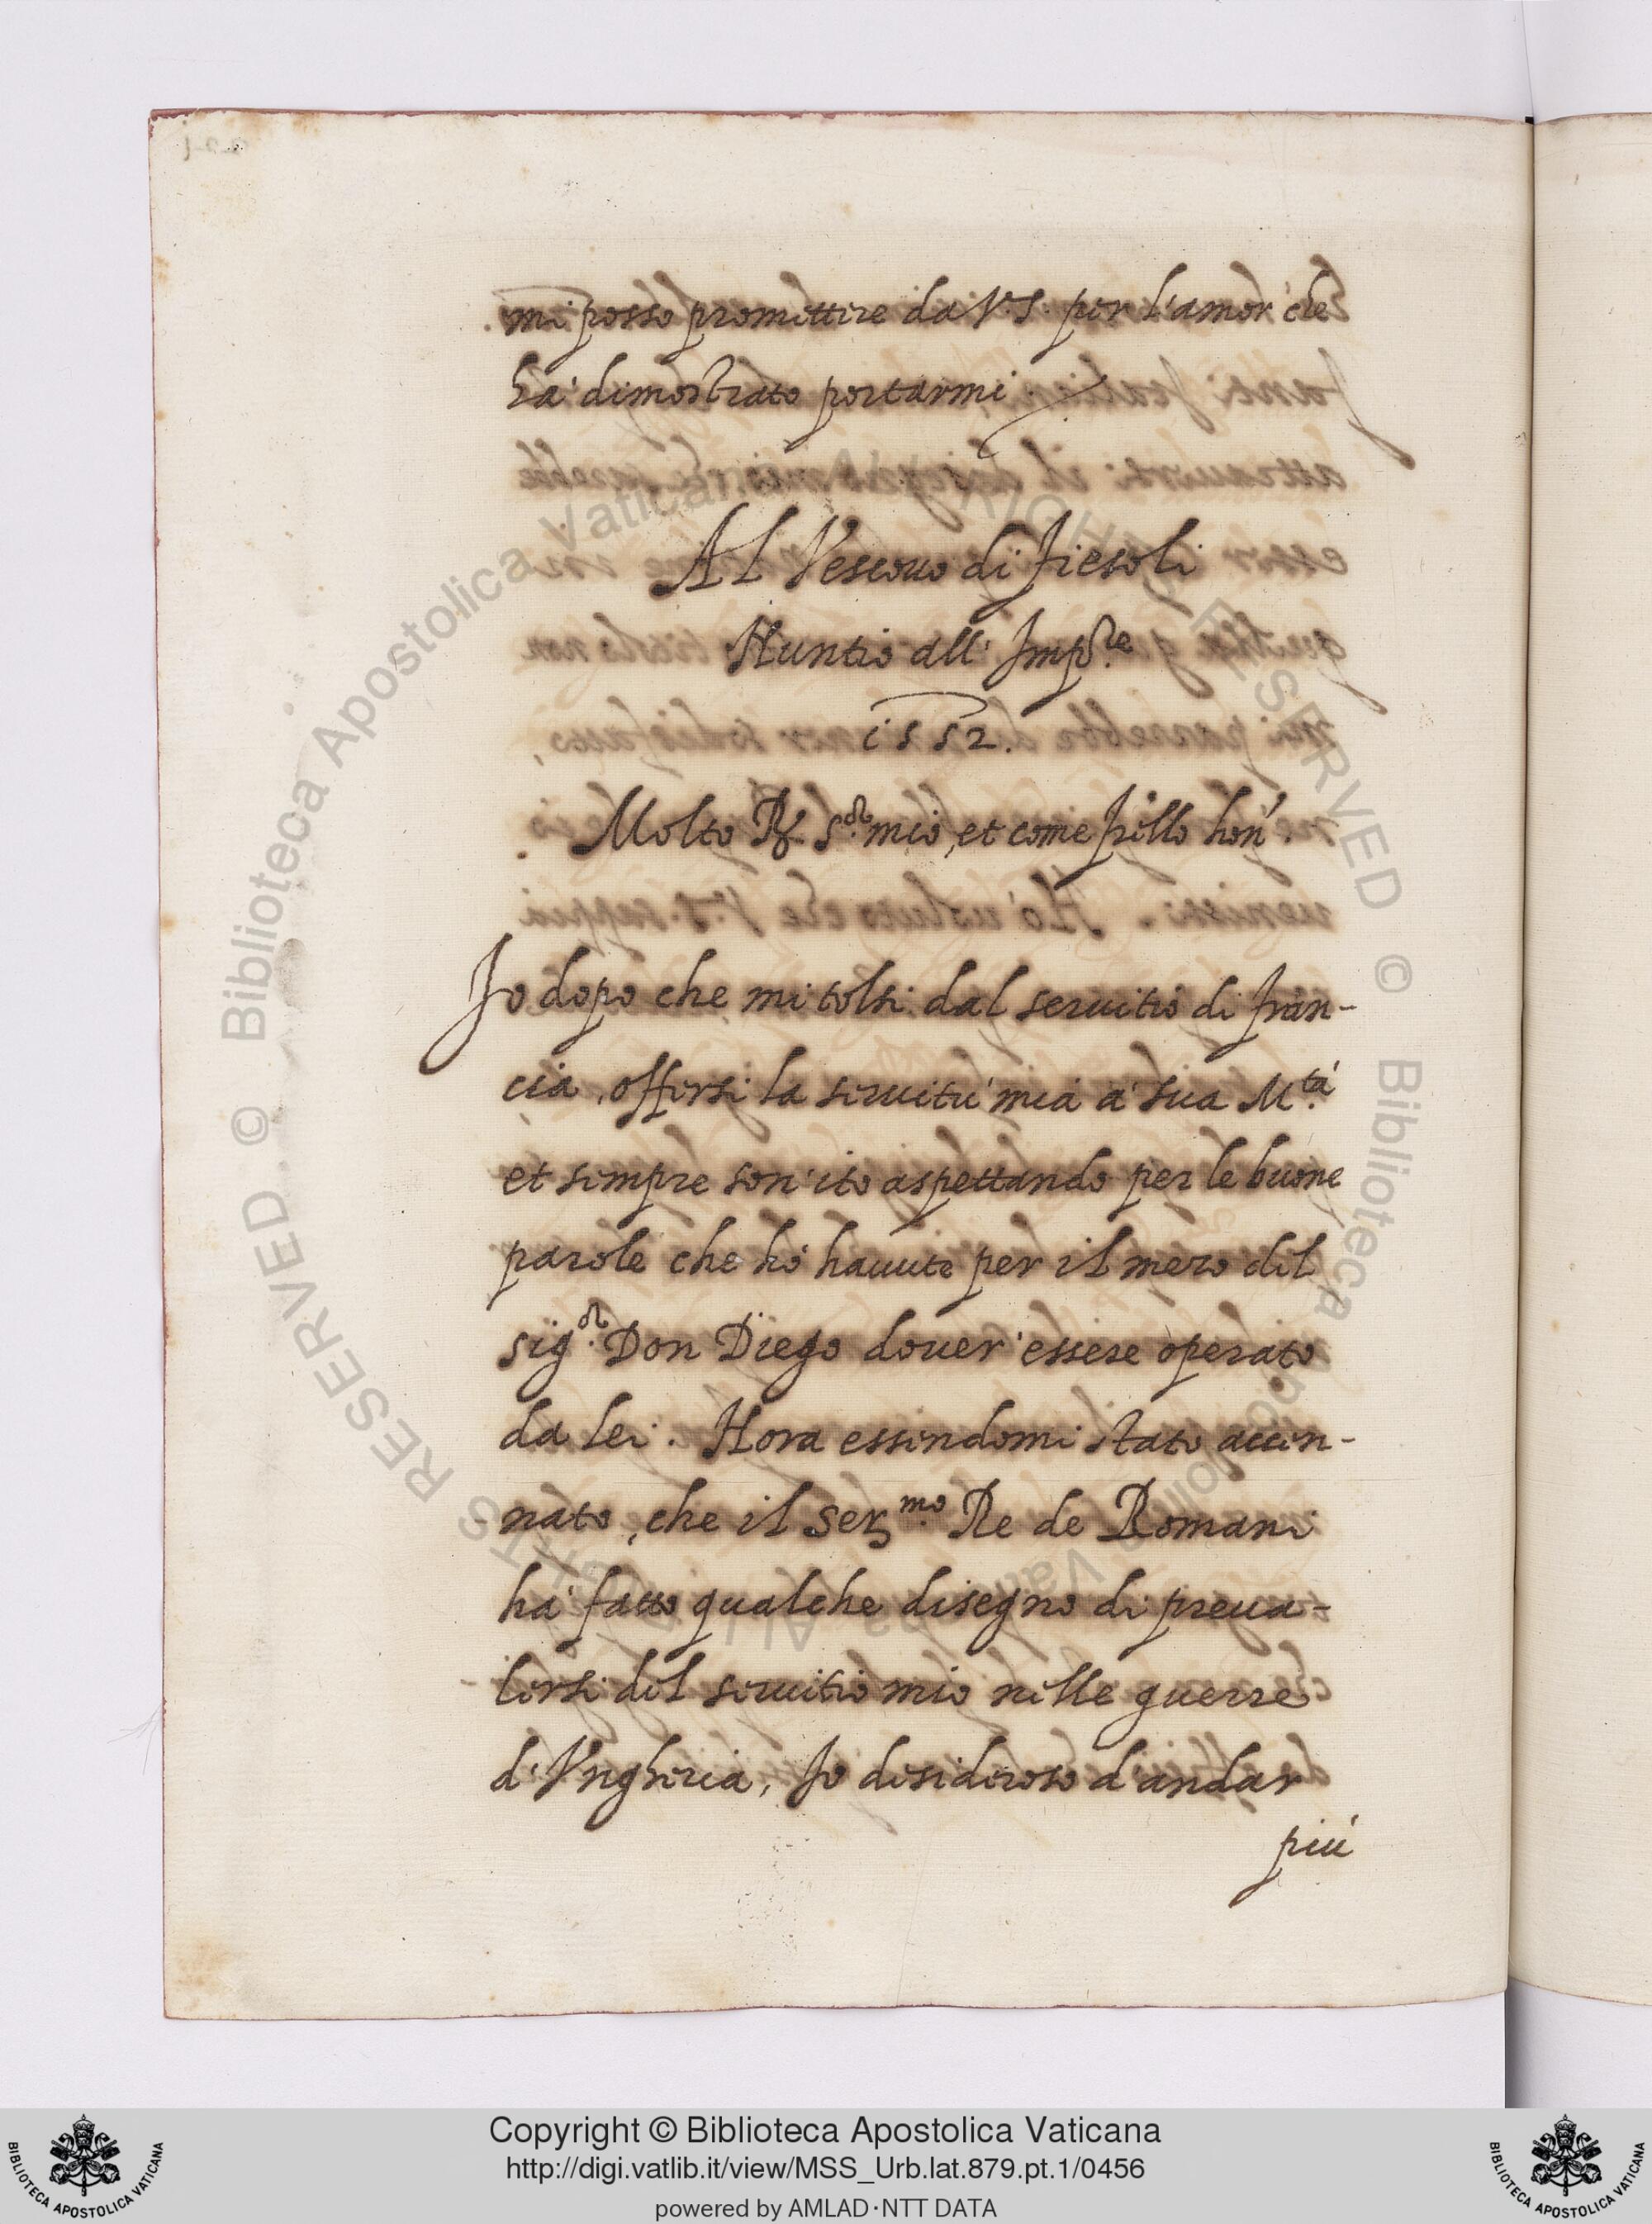 mi posso promettere da V.S. per l'amor che
ha' dimostrato portarmi.
Al Vescovo di Fiesoli
Nuntio all' Imp.re
1552.
Molto R. S.or mio, et come fr.ello hon.
Io dopo che mi tolsi dal servitio di Fran-
cia, offersi la servitu' mia a' sua M.ta'
et sempre son' ito aspettando per le buone
parole che ho' havute per il mezo del
sig.or Don Diego dover' essere operato
da lei. Hora essendomi stato accen-
nato, che il Ser.mo Re de Romani
ha' fatto qualche disegno di preva-
lersi del servitio mio nelle guerre
d'Vngheria, Io desideroso d'andar
piu'
Copyright © Biblioteca Apostolica Vaticana
http://digi.vatlib.it/view/MSS_Urb.lat.879.pt.1/0456
powered by AMLAD·NTT DATA
BIBLIOTECA APOSTOLICA VATICANA
BIBLIOTECA APOSTOLICA VATICANA